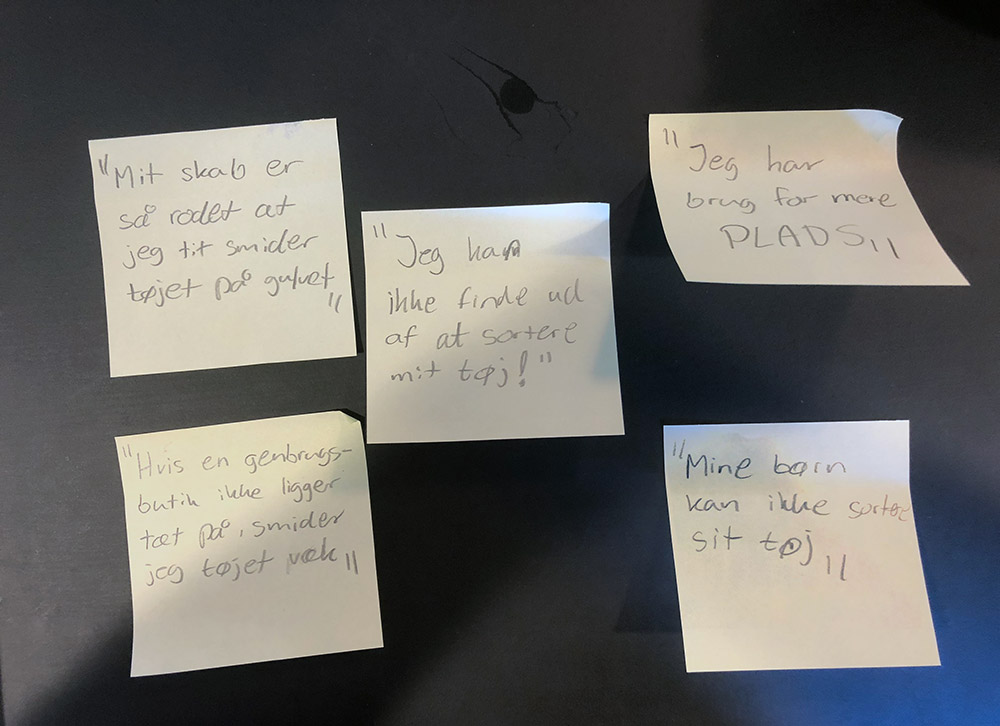 "Mit skab er
så rodet at
jeg tit smider
tøjet på gulvet"
"Jeg kan
ikke finde ud
af at sortere
mit tøj!"
"Jeg har
brug for mere
PLADS"
"Hvis en genbrugs-
butik ikke ligger
tæt på, smider
jeg tøjet væk"
"Mine børn
kan ikke sortere
sit tøj"